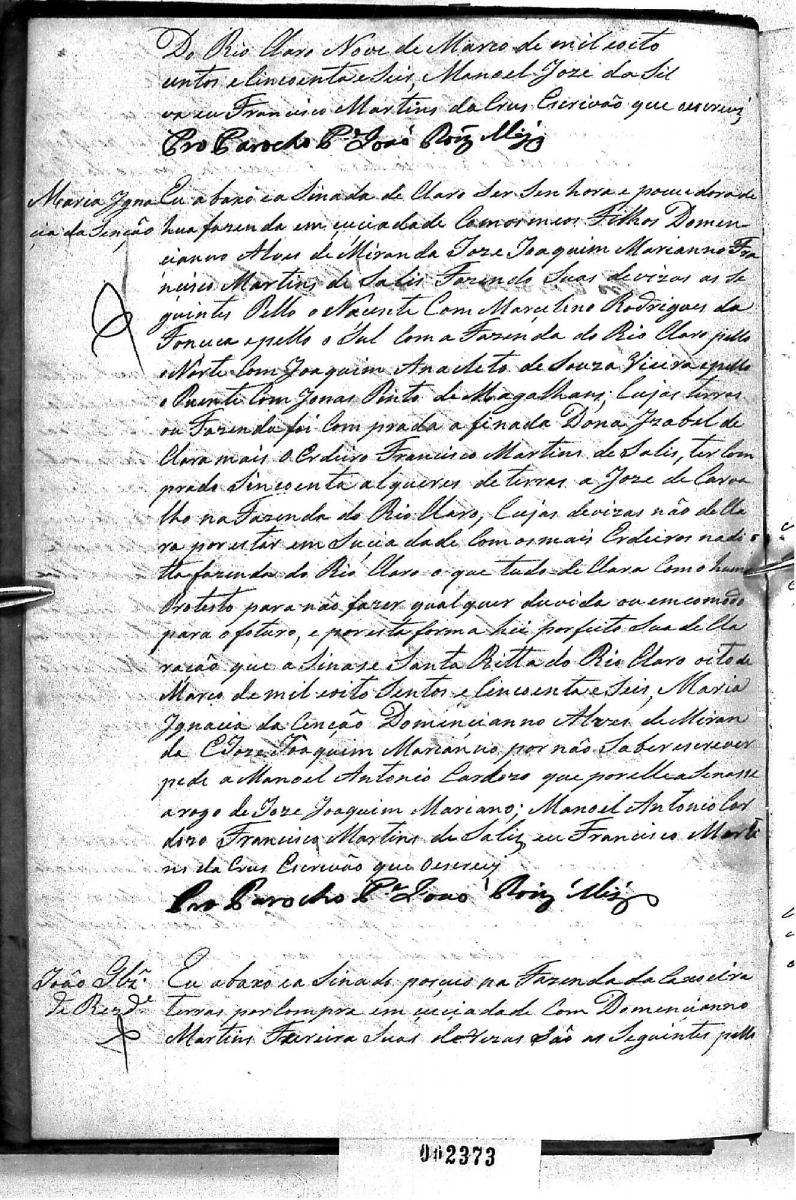 Do Rio Claro Nove de Marco de mil eoito
sentos e Cincoenta e Seis, Manoel Joze da Sil
va eu Francisco Martins da Crus Escrivão que escrevi
Pro Parocho Pe João Roiz
Maria Igna
cia da Senção
Eu abaxo ea Sinada de Claro Ser Senhora e pocuidora de
hua fazenda em çuciadade Com os meos Filhos Domen
cianno Alves de Miranda Joze Joaquim Marianno Fra
ncisco Martins de Salis Fazendo Suas devizas as se
guintes Pello o Nacente Com Marcelino Rodrigues da
Fonceca epello o Sul Com a Fazenda do Rio Claro pello
o Norte Com Joaquim Anacleto de Souza Vieira epello
o Puente Com Jonas Pinto de Magalhans, Cujas terras
ou Fazenda foi Com prada a finada Dona Izabel de
Clara mais O Erdeiro Francisco Martins de Salis, ter Com
prado Sincoenta alqueres de terras a Joze de Carva
lho na Fazenda do Rio Claro, Cujas devizas não de Cla
ra por estar em Suçiadade Com os mais Erdeiros na di
tta fazenda do Rio Claro o que tudo de Clara Como hum
Protesto para não fazer qualquer duvida ou emcomodo
para o foturo, e por esta forma hei porfeito Sua de Cla
ração que a Sinase Santa Ritta do Rio Claro oito de
Marco de mil eoito Sentos e Cincoenta e Seis, Maria
Ignacia da Cenção Domencianno Alves de Miran
da E Joze Joaquim Marianno por não Saber escrever
pede a Manoel Antonio Cardozo que por elle a Senasse
a rogo de Joze Joaquim Mariano; Manoel Antonio Car
dozo Francisco Martins de Saliz eu Francisco Marti
ns da Crus Escrivão que Oescrevy
Pro Parocho Pe João Roiz
João Glz
de Rezde
Eu abaxo ea Sinado poçuo na Fazenda da Caxoeira
terras por Compra em çuciadade Com Domencianno
Martins Ferreira Suas devizas São as Seguintes pello
002373